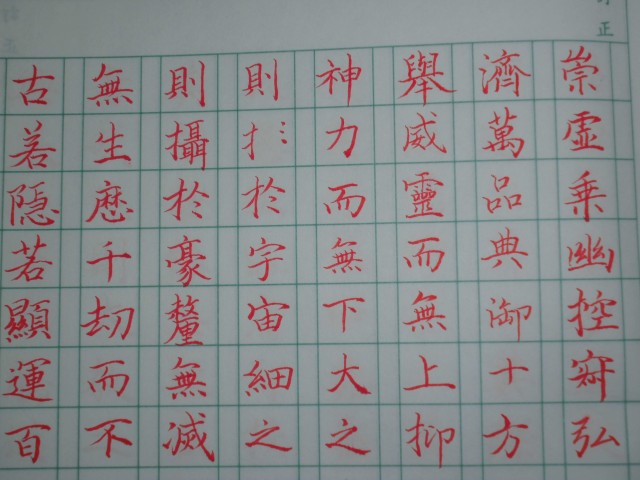 正
崇虛乗幽控寂弘
濟萬品典御十方
舉威靈而無上抑
神力而無下大之
則於宇宙細之
則攝於豪釐無滅
無生歷千劫而不
古若隱若顯運百